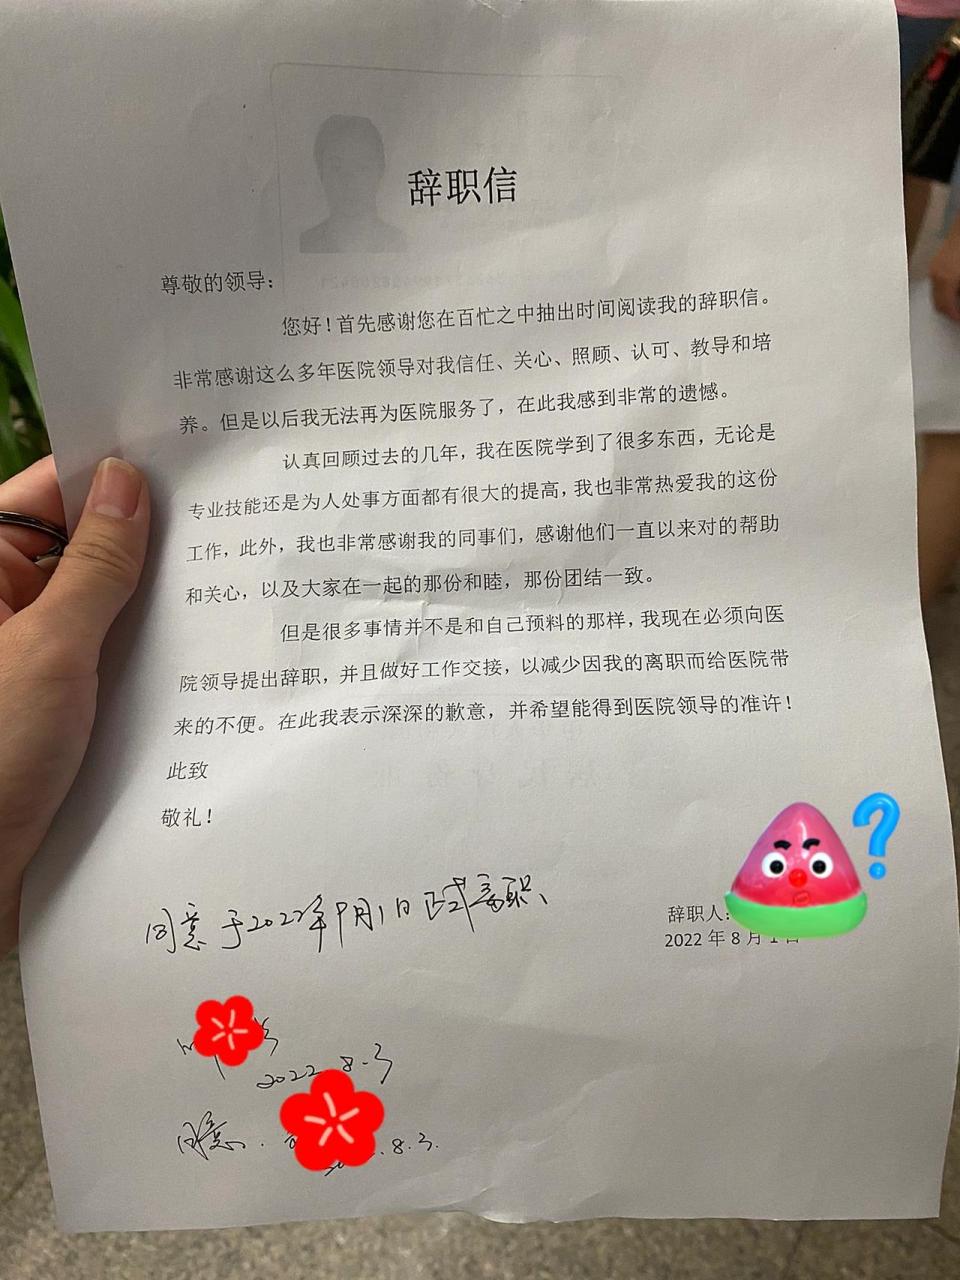 辞职信
尊敬的领导：
您好！首先感谢您在百忙之中抽出时间阅读我的辞职信。
非常感谢这么多年医院领导对我信任、关心、照顾、认可、教导和培
养。但是以后我无法再为医院服务了，在此我感到非常的遗憾。
认真回顾过去的几年，我在医院学到了很多东西，无论是
专业技能还是为人处事方面都有很大的提高，我也非常热爱我的这份
工作，此外，我也非常感谢我的同事们，感谢他们一直以来对的帮助
和关心，以及大家在一起的那份和睦，那份团结一致。
但是很多事情并不是和自己预料的那样，我现在必须向医
院领导提出辞职，并且做好工作交接，以减少因我的离职而给医院带
来的不便。在此我表示深深的歉意，并希望能得到医院领导的准许！
此致
敬礼！
同意于2022年9月1日正式离职、
辞职人：
2022 年 8 月 1 日
2022.8.3
同意.
.8.3.